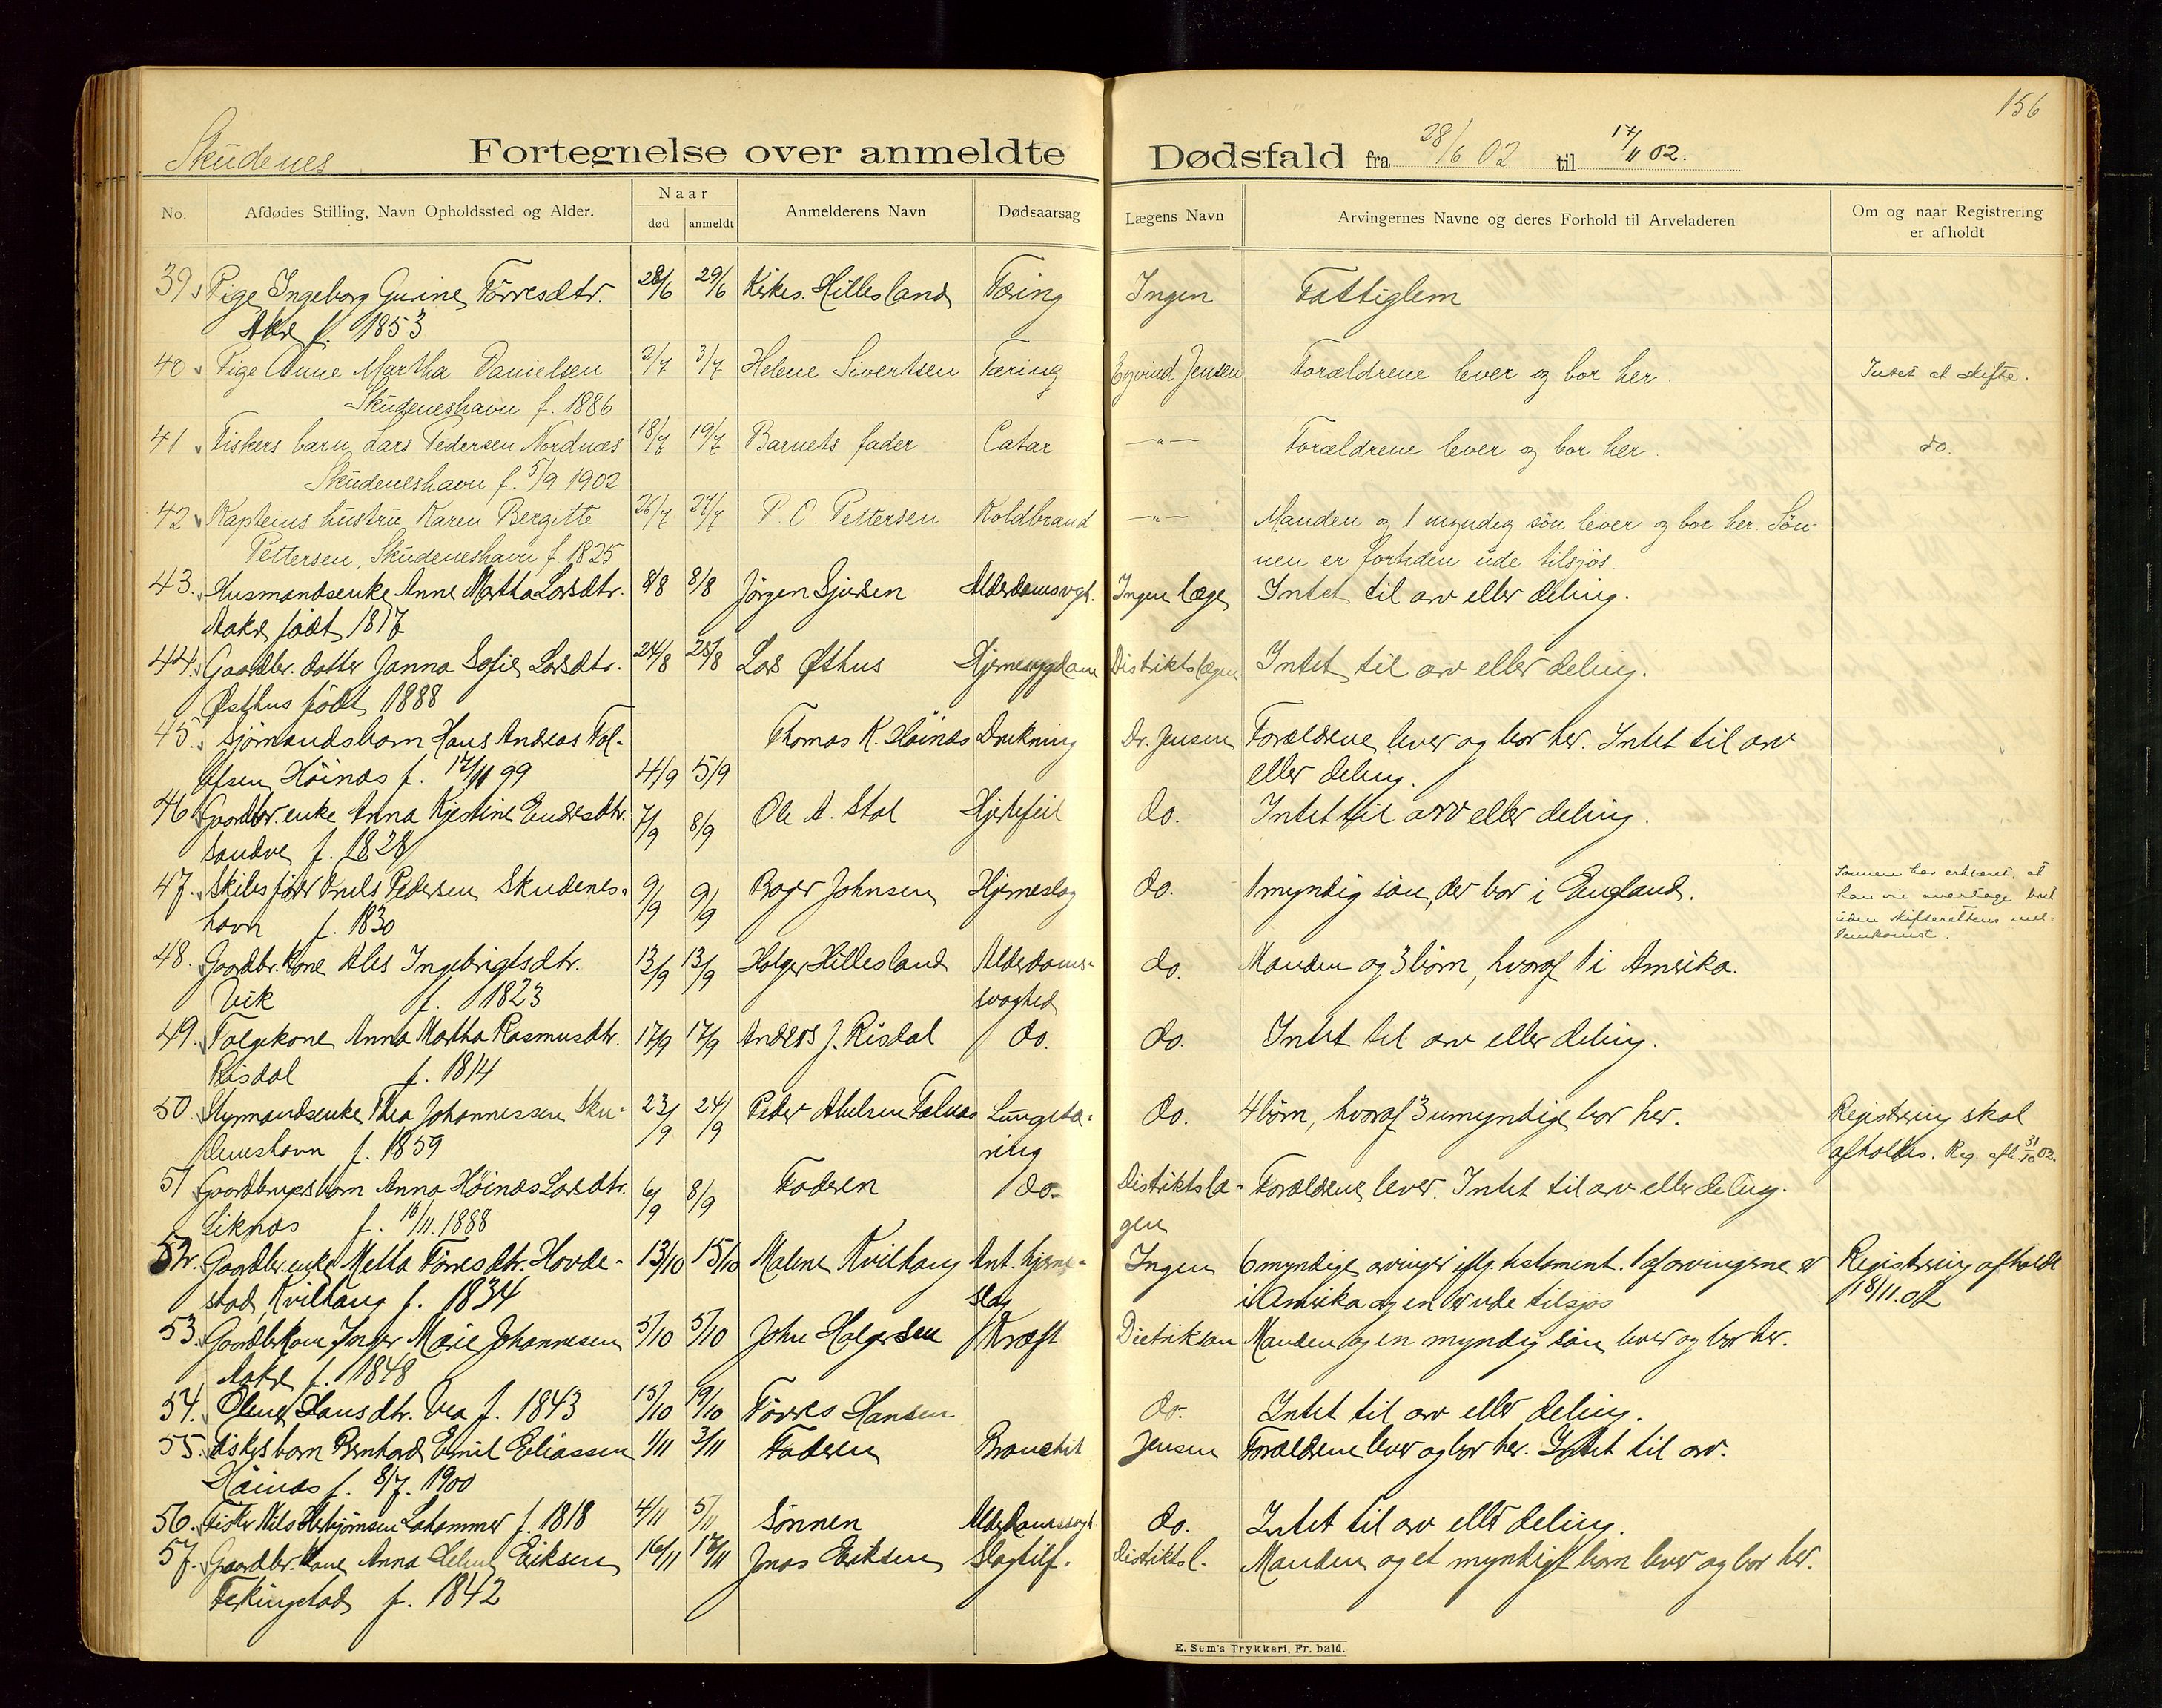 156
Skudenes Fortegnelse over anmeldte Dødsfald fra 28/6 02 til 17/11 02.
No. Afdødes Stilling, Navn Opholdssted og Alder. Naar død anmeldt Anmelderens Navn Dødsaarsag Lægens Navn Arvingernes Navne og deres Forhold til Arveladeren Om og naar Registrering er afholdt
39. Pige Ingeborg Gurine Törresdtr. 28/6 29/6 Kirkes. Hillesland Tæring Ingen Fattiglem
Akre f. 1853
40. Pige Anne Martha Danielsen 2/7 3/7 Helene Sivertsen Tæring Eyvind Jensen Forældrene lever og bor her. Intet at skifte.
Skudeneshavn f. 1886
41 Fiskers barn Lars Pedersen Nordnæs 18/7 19/7 Barnets fader Catar —"— Forældrene lever og bor her. do.
Skudeneshavn f. 5/9 1902
42 Kapteins hustru Karen Bergitte 26/7 27/7 P. C. Pettersen Koldbrand —"— Manden og 1 myndig sön lever og bor her. Søn-
Pettersen, Skudeneshavn f. 1825 nen er fortiden ude tilsjös.
43. Husmandsenke Anne Martha Larsdtr. 8/8 8/8 Jörgen Sjursen Alderdomsvgh. Ingen læge Intet til arv eller deling.
Aakre födt 1817
44. Gaardbr. datter Janna Sofie Larsdtr. 24/8 25/8 Lars Østhus Hjernesygdom Distriktslægen Intet til arv eller deling.
Østhus födt 1888
45. Sjömandsbarn Hans Andreas Tol- Thomas K. Höinæs Drukning Dr. Jensen Forældrene lever og bor her. Intet til arv
lefsen Höinæs f. 17/11 99 4/9 5/9 eller deling.
46 Gaardbr. enke Anna Kjestine Endresdtr. 7/9 8/9 Ole A. Stol Hjertefeil do. Intet til arv eller deling.
Sandve f. 1828
47. Skibsförer Pedersen Skudenes- 9/9 9/9 Roger Johnsen Hjerneslag do. 1 myndig sön, der bor i England. Sønnen har erklæret, at
havn f. 1830 han vil overtage boet
uden skifterettens mel-
lemkomst.
48. Gaardbr. kone Ales Ingebrigtsdtr. 13/9 13/9 Holger Hillesland Alderdoms- do. Manden og 3 börn, hvoraf 1 i Amerika.
Vik f. 1823 svaghed
49. Folgekone Anna Martha Rasmusdtr. 17/9 17/9 Anders J. Risdal do. do. Intet til arv eller deling.
Risdal f. 1814
50. Styrmandsenke Thea Johannessen Sku- 23/9 24/9 Peder Falnæs Lungetæ- do. 4 börn, hvoraf 3 umyndige bor her. Registrering skal
deneshavn f. 1859 ring afholdes. Reg. afh. 31/10 02.
51 Gaardbrugsbarn Anna Höinæs Larsdtr. 6/9 8/9 Faderen do. Distriktslæ- Forældrene lever. Intet til arv eller deling.
Liknæs f. 16/11. 1888 gen
52. Gaardbr. enke Metta Törresdtr. Hovde- 13/10 15/10 Malene Kvilhaug Ant. hjerne- Ingen 6 myndige arvinger iflg. testament. 1 af arvingerne er Registrering afholdt
stad, Kvilhaug f. 1834 slag i Amerika og en er ude tilsjös 18/11. 02
53. Gaardbr kone Inger Marie Johannesen 5/10 5/10 John Holgersen Kræft Dietrikson Manden og en myndig sön lever og bor her.
Aakre f. 1848
54. Olene Hansdtr. Vea f. 1843 15/10 19/10 Törres Hansen do. Intet til arv eller deling.
55. Fiskersbarn Bernhard Emil Eliassen 1/11 3/11 Faderen Bronchit Jensen Forældrene lever og bor her. Intet til arv.
Höinæs f. 8/7. 1900
56. Fisker Nils Herbjörnsen Lahammer f. 1818 4/11 5/11 Sönnen Alderdomssvgh. do. Intet til arv eller deling.
57. Gaardbr. kone Anna Helene Eriksen 16/11 17/11 Jonas Eriksen Slagtilf. Distriktsl. Manden og et myndigt barn lever og bor her.
Ferkingstad f. 1842
E. Sem's Trykkeri, Fr. hald.